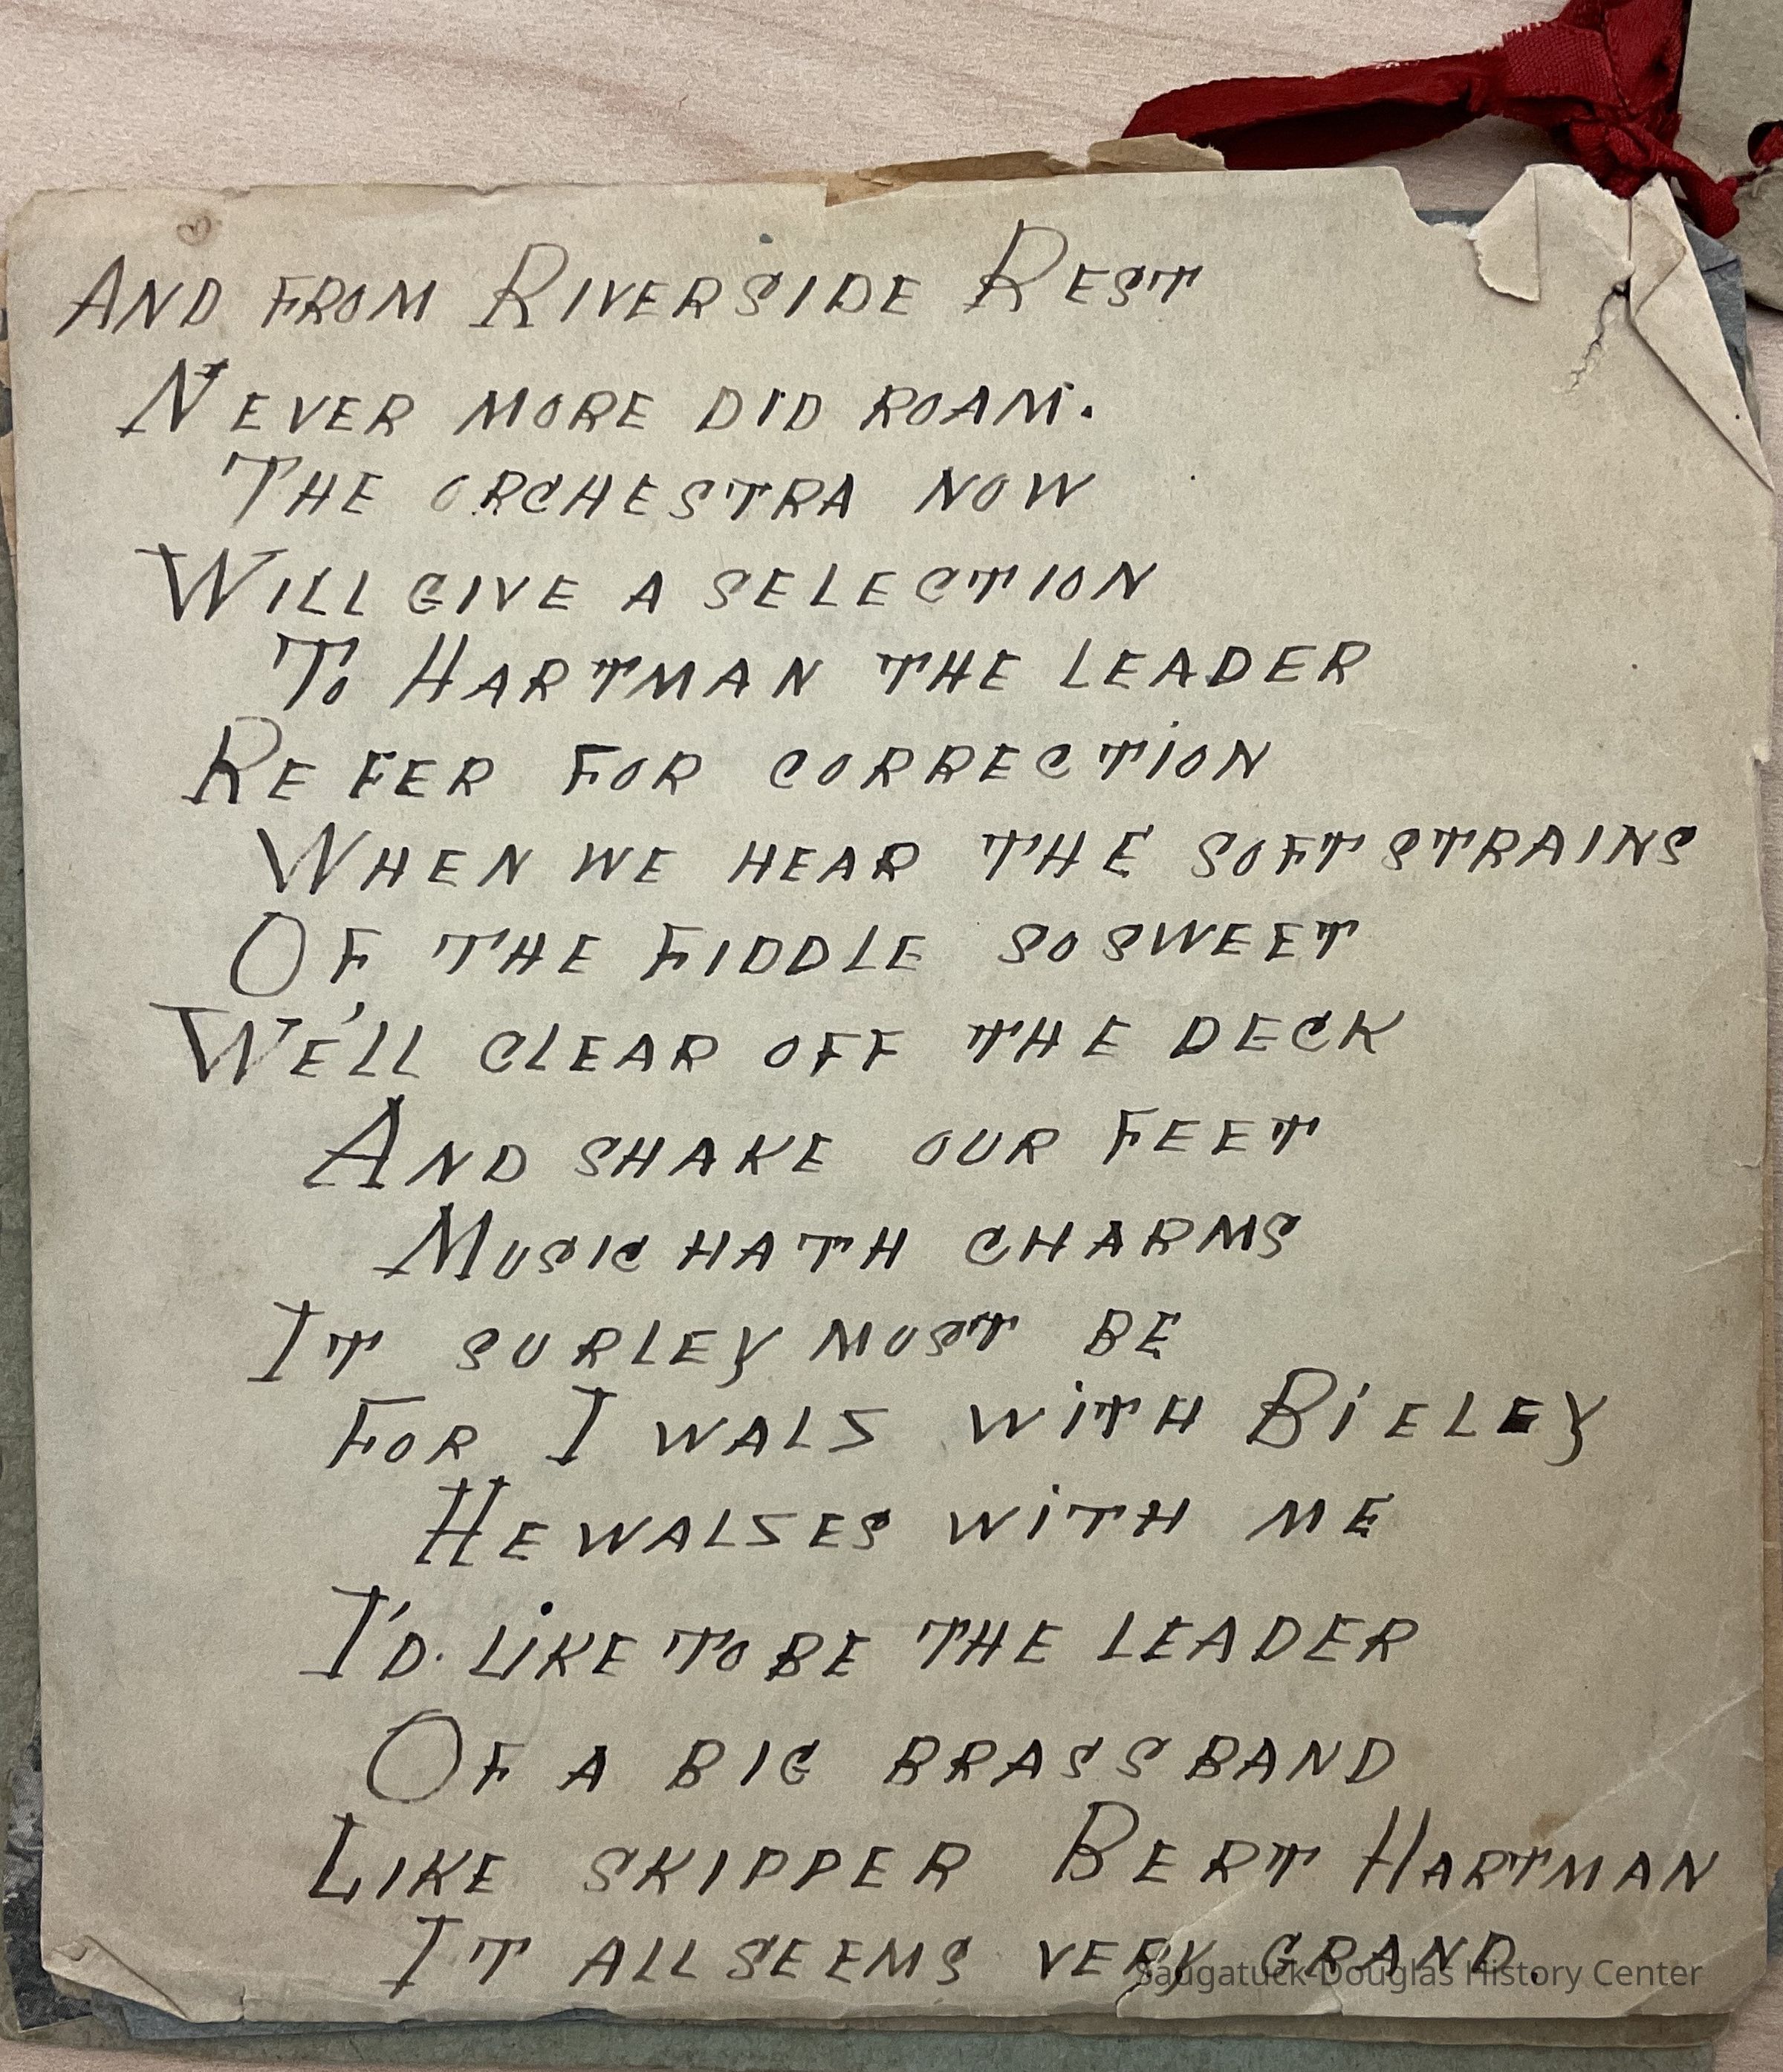 And from Riverside Rest
Never more did roam.
The orchestra now
Will give a selection
To Hartman the leader
Refer for correction
When we hear the soft strains
Of the fiddle so sweet
We'll clear off the deck
And shake our feet
Music hath charms
It surley must be
For I wals with Bieley
He walses with me
I'd. like to be the leader
Of a big brass band
Like skipper Bert Hartman
It all seems very grand.
Saugatuck-Douglas History Center